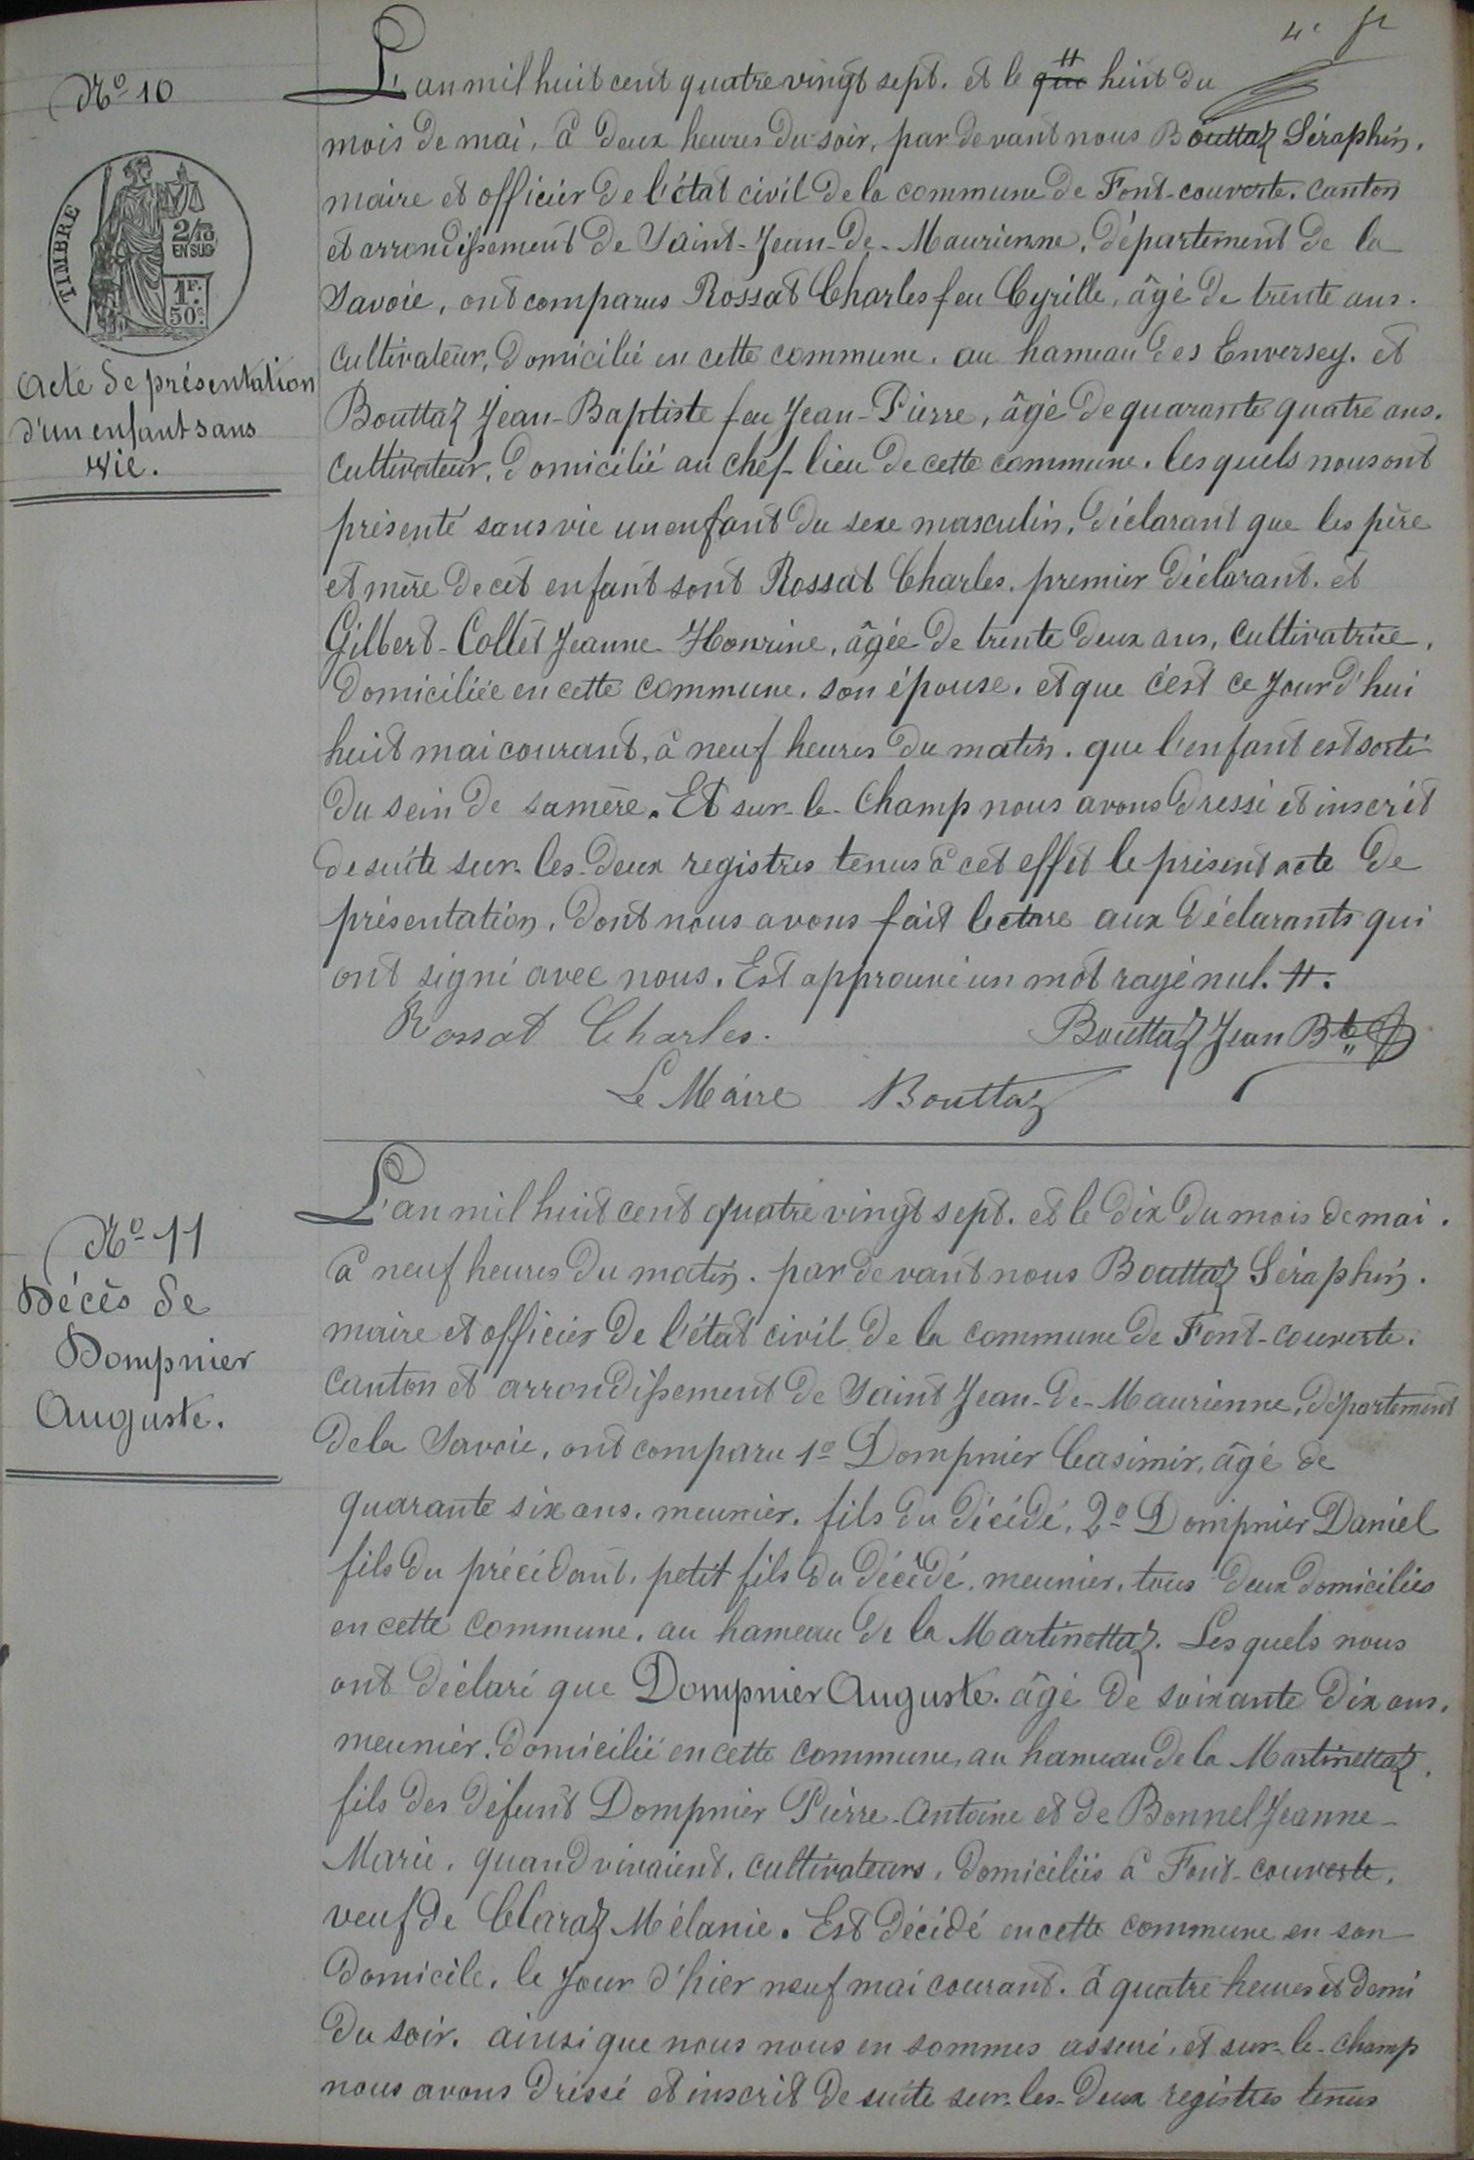 4e ft
N° 10
TIMBRE
2/10
EN SUS
1F.
50c.
Acte de présentation
d'un enfant sans
vie.
L'an mil huit cent quatre vingt sept. et le que huit du
mois de mai, à deux heures du soir, par devant nous Bouttaz Séraphin,
maire et officier de l'état civil de la commune de Font-couverte, canton
et arrondissement de Saint-Jean-de-Maurienne, département de la
Savoie, ont comparus Rossat Charles feu Cyrille, âgé de trente ans.
cultivateur, domicilié en cette commune. au hameau des Enversey. et
Bouttaz Jean-Baptiste feu Jean-Pierre, âgé de quarante quatre ans.
cultivateur, domicilié au chef-lieu de cette commune. les quels nous ont
présenté sans vie un enfant du sexe masculin, déclarant que les père
et mère de cet enfant sont Rossat Charles. premier déclarant. et
Gilbert-Collet Jeanne Honrine, âgée de trente deux ans, cultivatrice,
domiciliée en cette commune. son épouse. et que c'est ce jour d'hui
huit mai courant, à neuf heures du matin. que l'enfant est sorti
du sein de sa mère. Et sur-le-champ nous avons dressé et inscrit
de suite sur-les-deux registres tenus à cet effet le présent acte de
présentation, dont nous avons fait lecture aux déclarants qui
ont signé avec nous. Est approuvé un mot rayé nul. #.
Rossat Charles. Bouttaz Jean Bte
Le Maire Bouttaz
N° 11
Décès de
Dompnier
Auguste.
L'an mil huit cent quatre vingt sept. et le dix du mois de mai.
à neuf heures du matin. par devant nous Bouttaz Séraphin.
maire et officier de l'état civil de la commune de Font-couverte.
canton et arrondissement de Saint Jean-de-Maurienne, département
de la Savoie, ont comparu 1° Dompnier Casimir, âgé de
quarante six ans. meunier. fils du décédé, 2° Dompnier Daniel
fils du précédant, petit fils du décédé, meunier, tous deux domiciliés
en cette commune. au hameau de la Martinettaz. Les quels nous
ont déclaré que Dompnier Auguste. âgé de soixante dix ans.
meunier, domicilié en cette commune, au hameau de la Martinettaz,
fils des défunt Dompnier Pierre-Antoine et de Bonnel Jeanne-
Marie, quand vivaient, cultivateurs, domiciliés à Font-couverte,
veuf de Claraz Mélanie. Est décédé en cette commune en son
domicile, le jour d'hier neuf mai courant. à quatre heures et demi
du soir. ainsi que nous nous en sommes assuré, et sur-le-champ
nous avons dressé et inscrit de suite sur-les-deux registres tenus